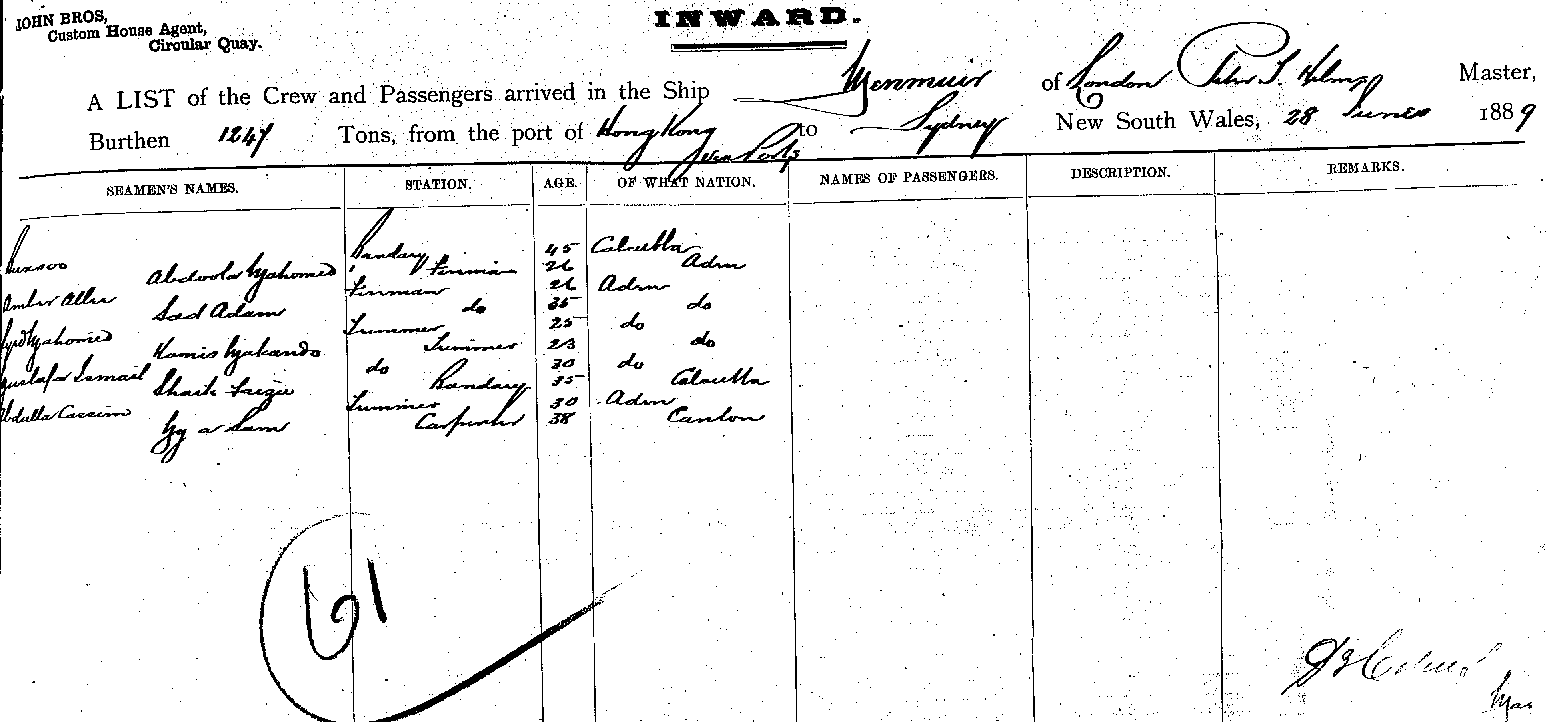 JOHN BROS,
Custom House Agent,
Circular Quay.
INWARD.
A LIST of the Crew and Passengers arrived in the Ship Menmuir of London Master,
Burthen 1247 Tons, from the port of Hong Kong via Ports to Sydney New South Wales, 28 June 1889
SEAMEN'S NAMES. STATION. AGE. OF WHAT NATION. NAMES OF PASSENGERS. DESCRIPTION. REMARKS.
Bandary 45 Calcutta
Abdoola Mahomed Fireman 26 Aden
Fireman 26 Aden
Sad Adam do 35 do
Mahomed Trimmer 25 do
Hamis Trimmer 23 do
Ismail do 30 do
Shaik Bandary 35 Calcutta
Abdulla Cassim Trimmer 30 Aden
Carpenter 38 Canton
61